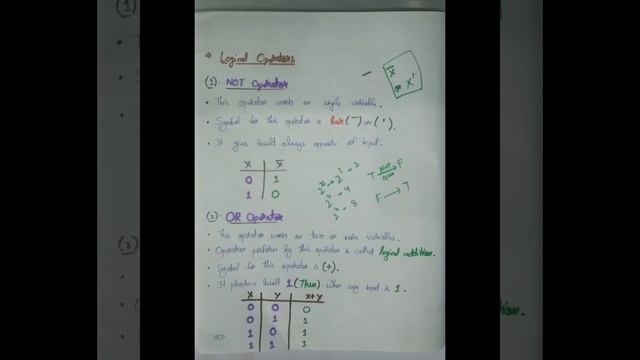 → Logical Operators
(1). NOT Operator
• This operator works on single variable.
• Symbol for this operator is bar(—) or (').
• It gives result always opposite of input.
X X̅
0 1
1 0
— X̅ or X'
2ⁿ → 2¹ = 2
2² = 4
2³ = 8
T → F
F → T
(2). OR Operator
• This operator works on two or more variables.
• Operation perform by this operator is called logical addition.
• Symbol for this operator is (+).
• It produce result 1 (True) when any input is 1.
X Y X+Y
0 0 0
0 1 1
1 0 1
1 1 1